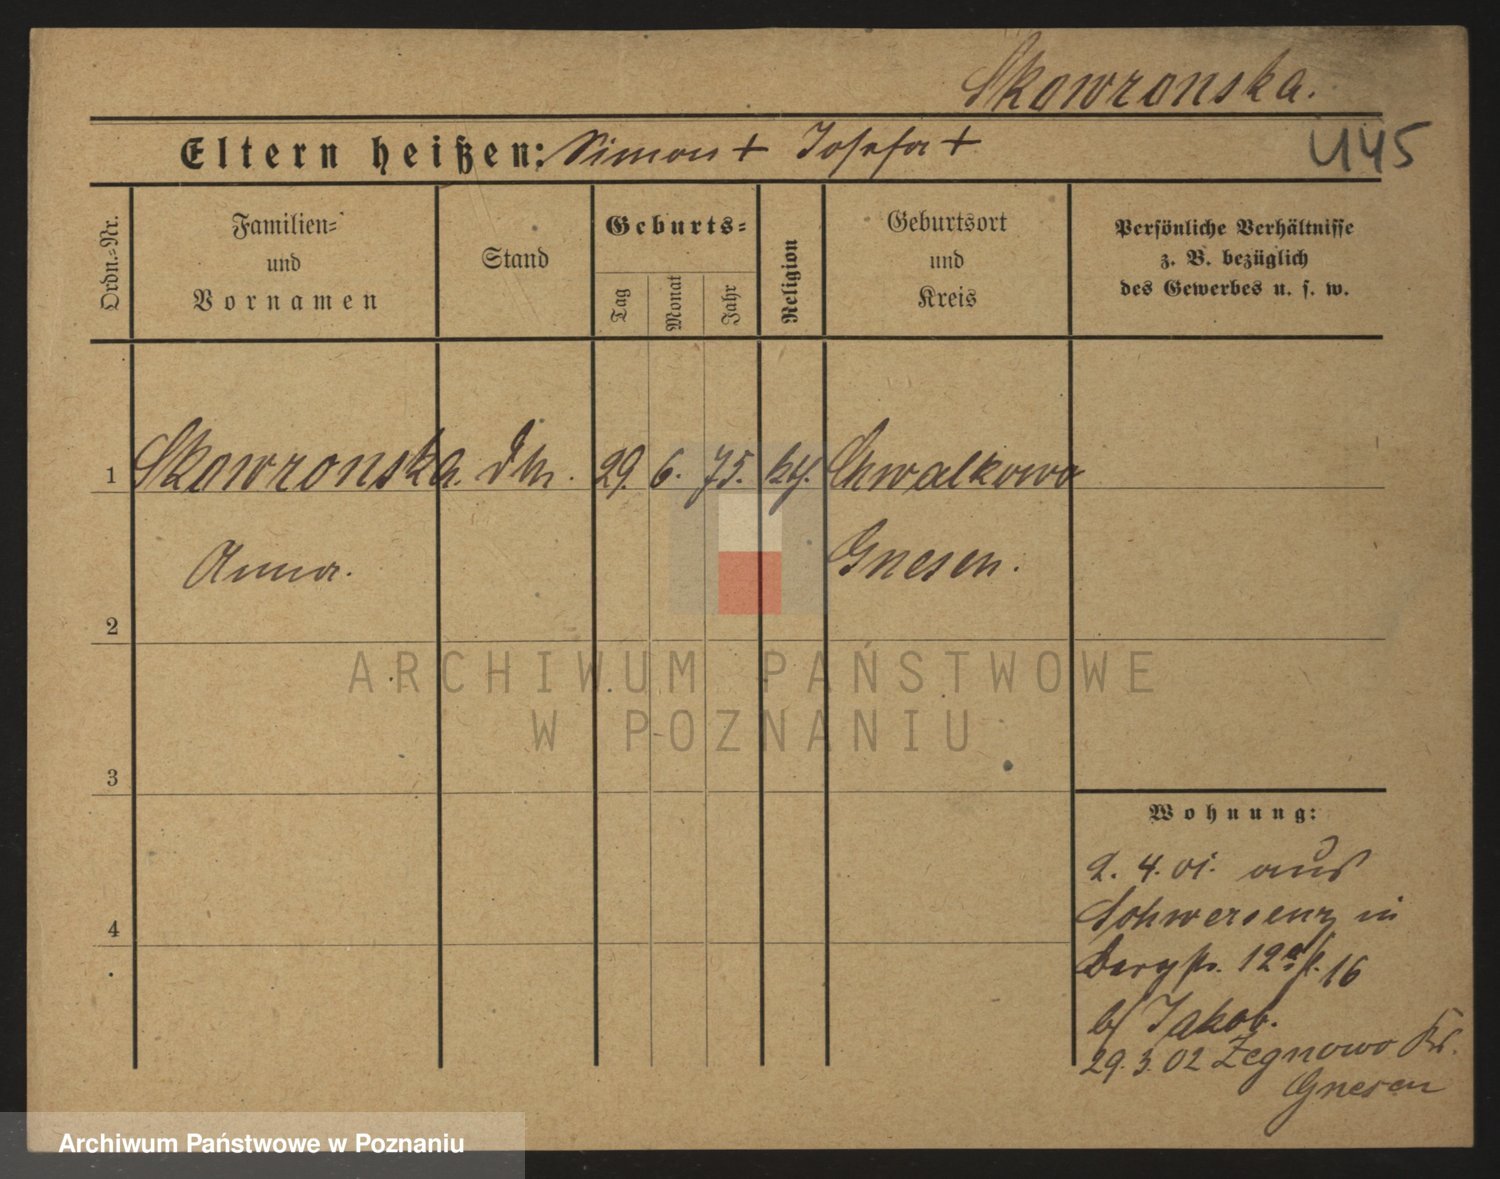 Skowronska.
Eltern heißen: Simon + Josefa +
U45
Ordn.-Nr.
Familien-
und
Vornamen
Stand
Geburts-
Tag
Monat
Jahr
Religion
Geburtsort
und
Kreis
Persönliche Verhältnisse
z. B. bezüglich
des Gewerbes u. s. w.
1 Skowronska. 29. 6. 75. Chwalkowo
Anna. Gnesen.
2
3
4
Wohnung:
2. 4. 01. aus
Schwersenz in
Bergstr. 12a 16
b/ Jakob.
29. 3. 02 Zegnowo Kr.
Gnesen
ARCHIWUM PAŃSTWOWE
W POZNANIU
Archiwum Państwowe w Poznaniu